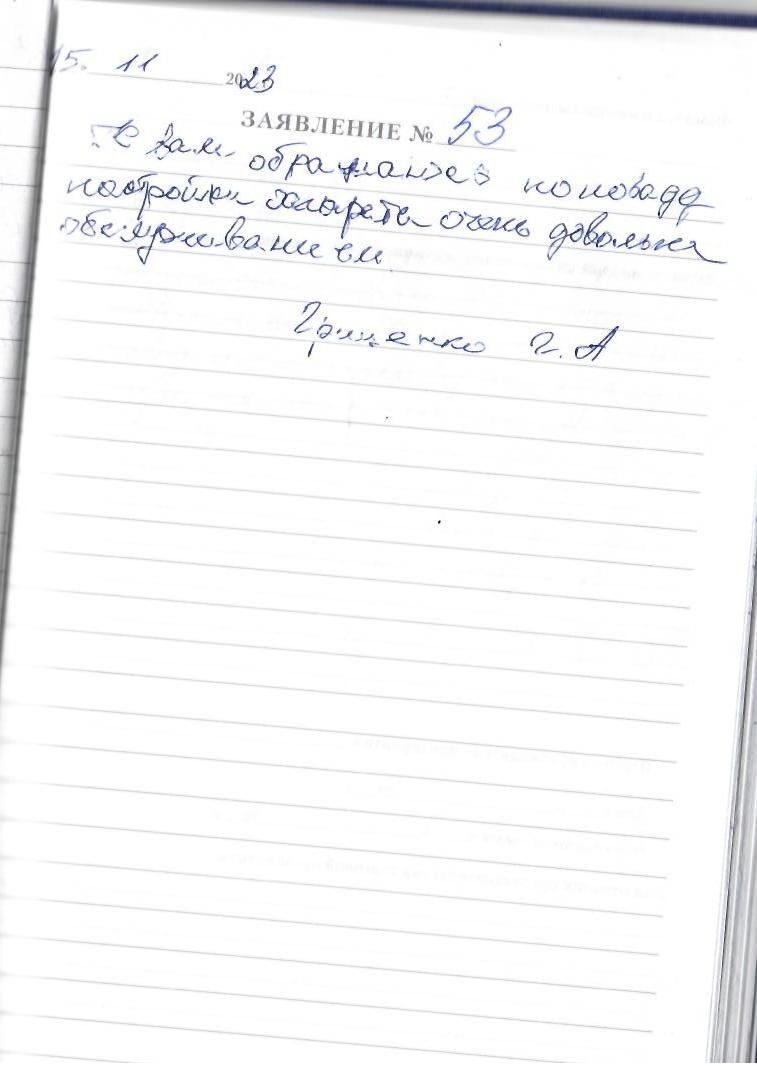 15. 11 2023
ЗАЯВЛЕНИЕ № 53
К вам обращаюсь по поводу
настройки очень довольна
обслуживанием
Гриценко Г. А